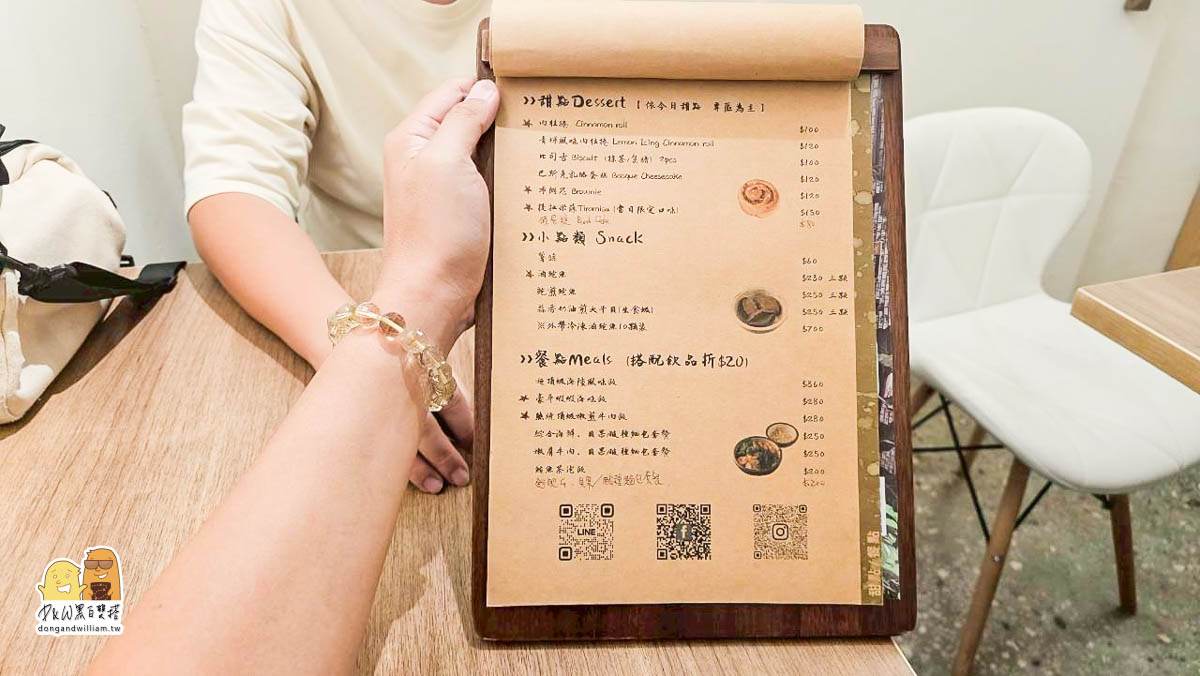 >>甜點Dessert [ 依今日甜點 專區為主 ]
★ 肉桂捲 Cinnamon roll $100
青檸風味肉桂捲 Lemon Icing Cinnamon roll $120
比司吉 Biscuit (抹茶/焦糖) 2pcs $100
巴斯克乳酪蛋糕 Basque Cheesecake $120
★ 布朗尼 Brownie $120
★ 提拉米蘇Tiramisu (當日限定口味) $150
$80
>>小點類 Snack
$60
★ 滷鮑魚 $230 三顆
乾煎鮑魚 $250 三顆
蒜香奶油煎大干貝(生食級) $250 三顆
※外帶冷凍滷鮑魚10顆裝 $700
>>餐點Meals (搭配飲品折$20)
頂級海陸風味飯 $360
★ 豪華蝦蝦海味飯 $280
★ 頂級嫩煎牛肉飯 $280
綜合海鮮、貝果/酸種麵包套餐 $250
嫩肩牛肉、貝果/酸種麵包套餐 $250
鮭魚茶泡飯 $200
貝果/酸種麵包套餐 $200
LINE
甜點/餐點
D&W黑白雙搭
dongandwilliam.tw